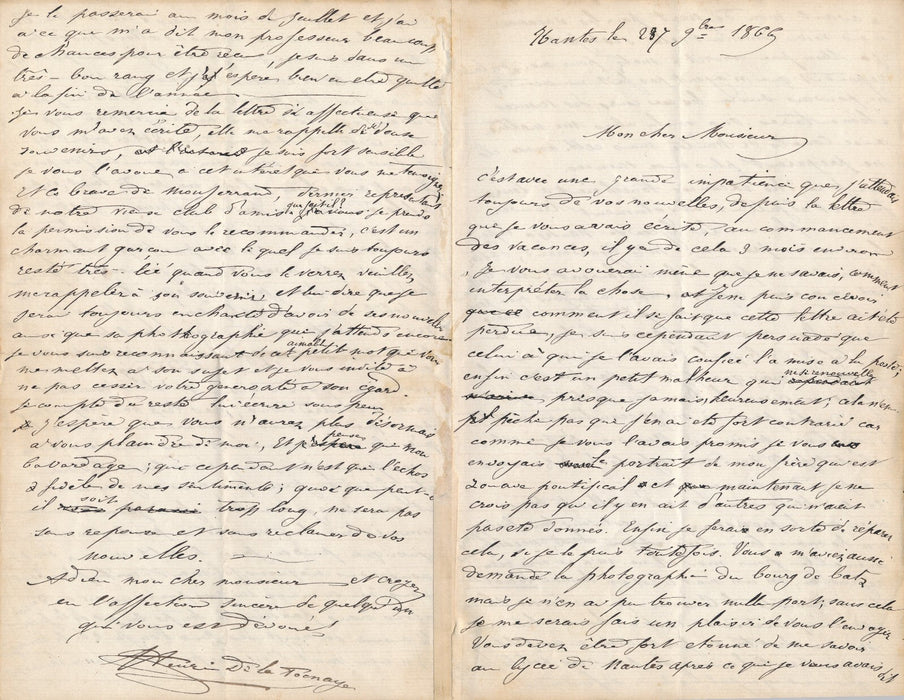 Nantes le 27 9bre 1869
Mon cher Monsieur
c'est avec une grande impatience que j'attendais
toujours de vos nouvelles, depuis la lettre
que je vous avais écrite, au commancement
des vacances, il y a de cela 3 mois environ
Je vous avouerai même que je ne savais, comment
interpréter la chose, et je ne puis concevoir
comment il se fait que cette lettre ait été
perdue, je suis cependant persuadé que
celui à qui je l'avais confiée l'a mise à la poste;
enfin c'est un petit malheur qui ne se renouvelle
presque jamais, heureusement; cela n'em
pêche pas que j'en ai été fort contrarié car
comme je vous l'avais promis je vous
envoyais le portrait de mon frère qui est
zouave pontifical et maintenant je ne
crois pas qu'il y en ait d'autres qu'il n'ait
pas été donnés. Enfin je ferais en sorte de réparer
cela, si je le puis toutefois. Vous m'aviez aussi
demandé la photographie du bourg de batz
mais je n'en ai pu trouver nulle part; sans cela
je me serais fais un plaisir de vous l'envoyer
Vous devez être fort etonné de me savoir
au lycée de Nantes après ce que je vous avais dit
je le passerai au mois de Juillet et j'ai
à ce que m'a dit mon professeur beaucoup
de chances pour être reçu, je suis dans un
très-bon rang et j'espère bien en être quitte
à la fin de l'année
Je vous remercie de la lettre si affectueuse que
vous m'avez écrite, elle me rappelle de doux
souvenirs, je suis fort sensible
je vous l'avoue à cet intérêt que vous me temoignez
Et ce brave de Monferrand, dernier représentant
de notre vieux club d'amis que fait-il? je prends
la permission de vous le recommander, c'est un
charmant garçon avec le quel je suis toujours
resté très-lié, quand vous le verrez veuillez
me rappeler à son souvenir et lui dire que je
serai toujours enchanté d'avoir de ses nouvelles
ainsi que sa photographie que j'attends encore
je vous suis reconnaissant de cet aimable petit mot que vous
me mettez à son sujet et je vous invite à
ne pas cesser votre générosité à son égard
je compte du reste lui écrire sous peu
j'espère que vous n'aurez plus désormais
à vous plaindre de moi, Et penser que mon
bavardage; qui cependant n'est que l'echos
fidèle de mes sentiments; quoi que peut-
il soit trop long, ne sera pas
sans reponse et sans reclamer de vos
nouvelles.
Adieu mon cher monsieur et croyez
en l'affection sincère de quelqu'un
qui vous est dévoué!
Henri De la Toenaye